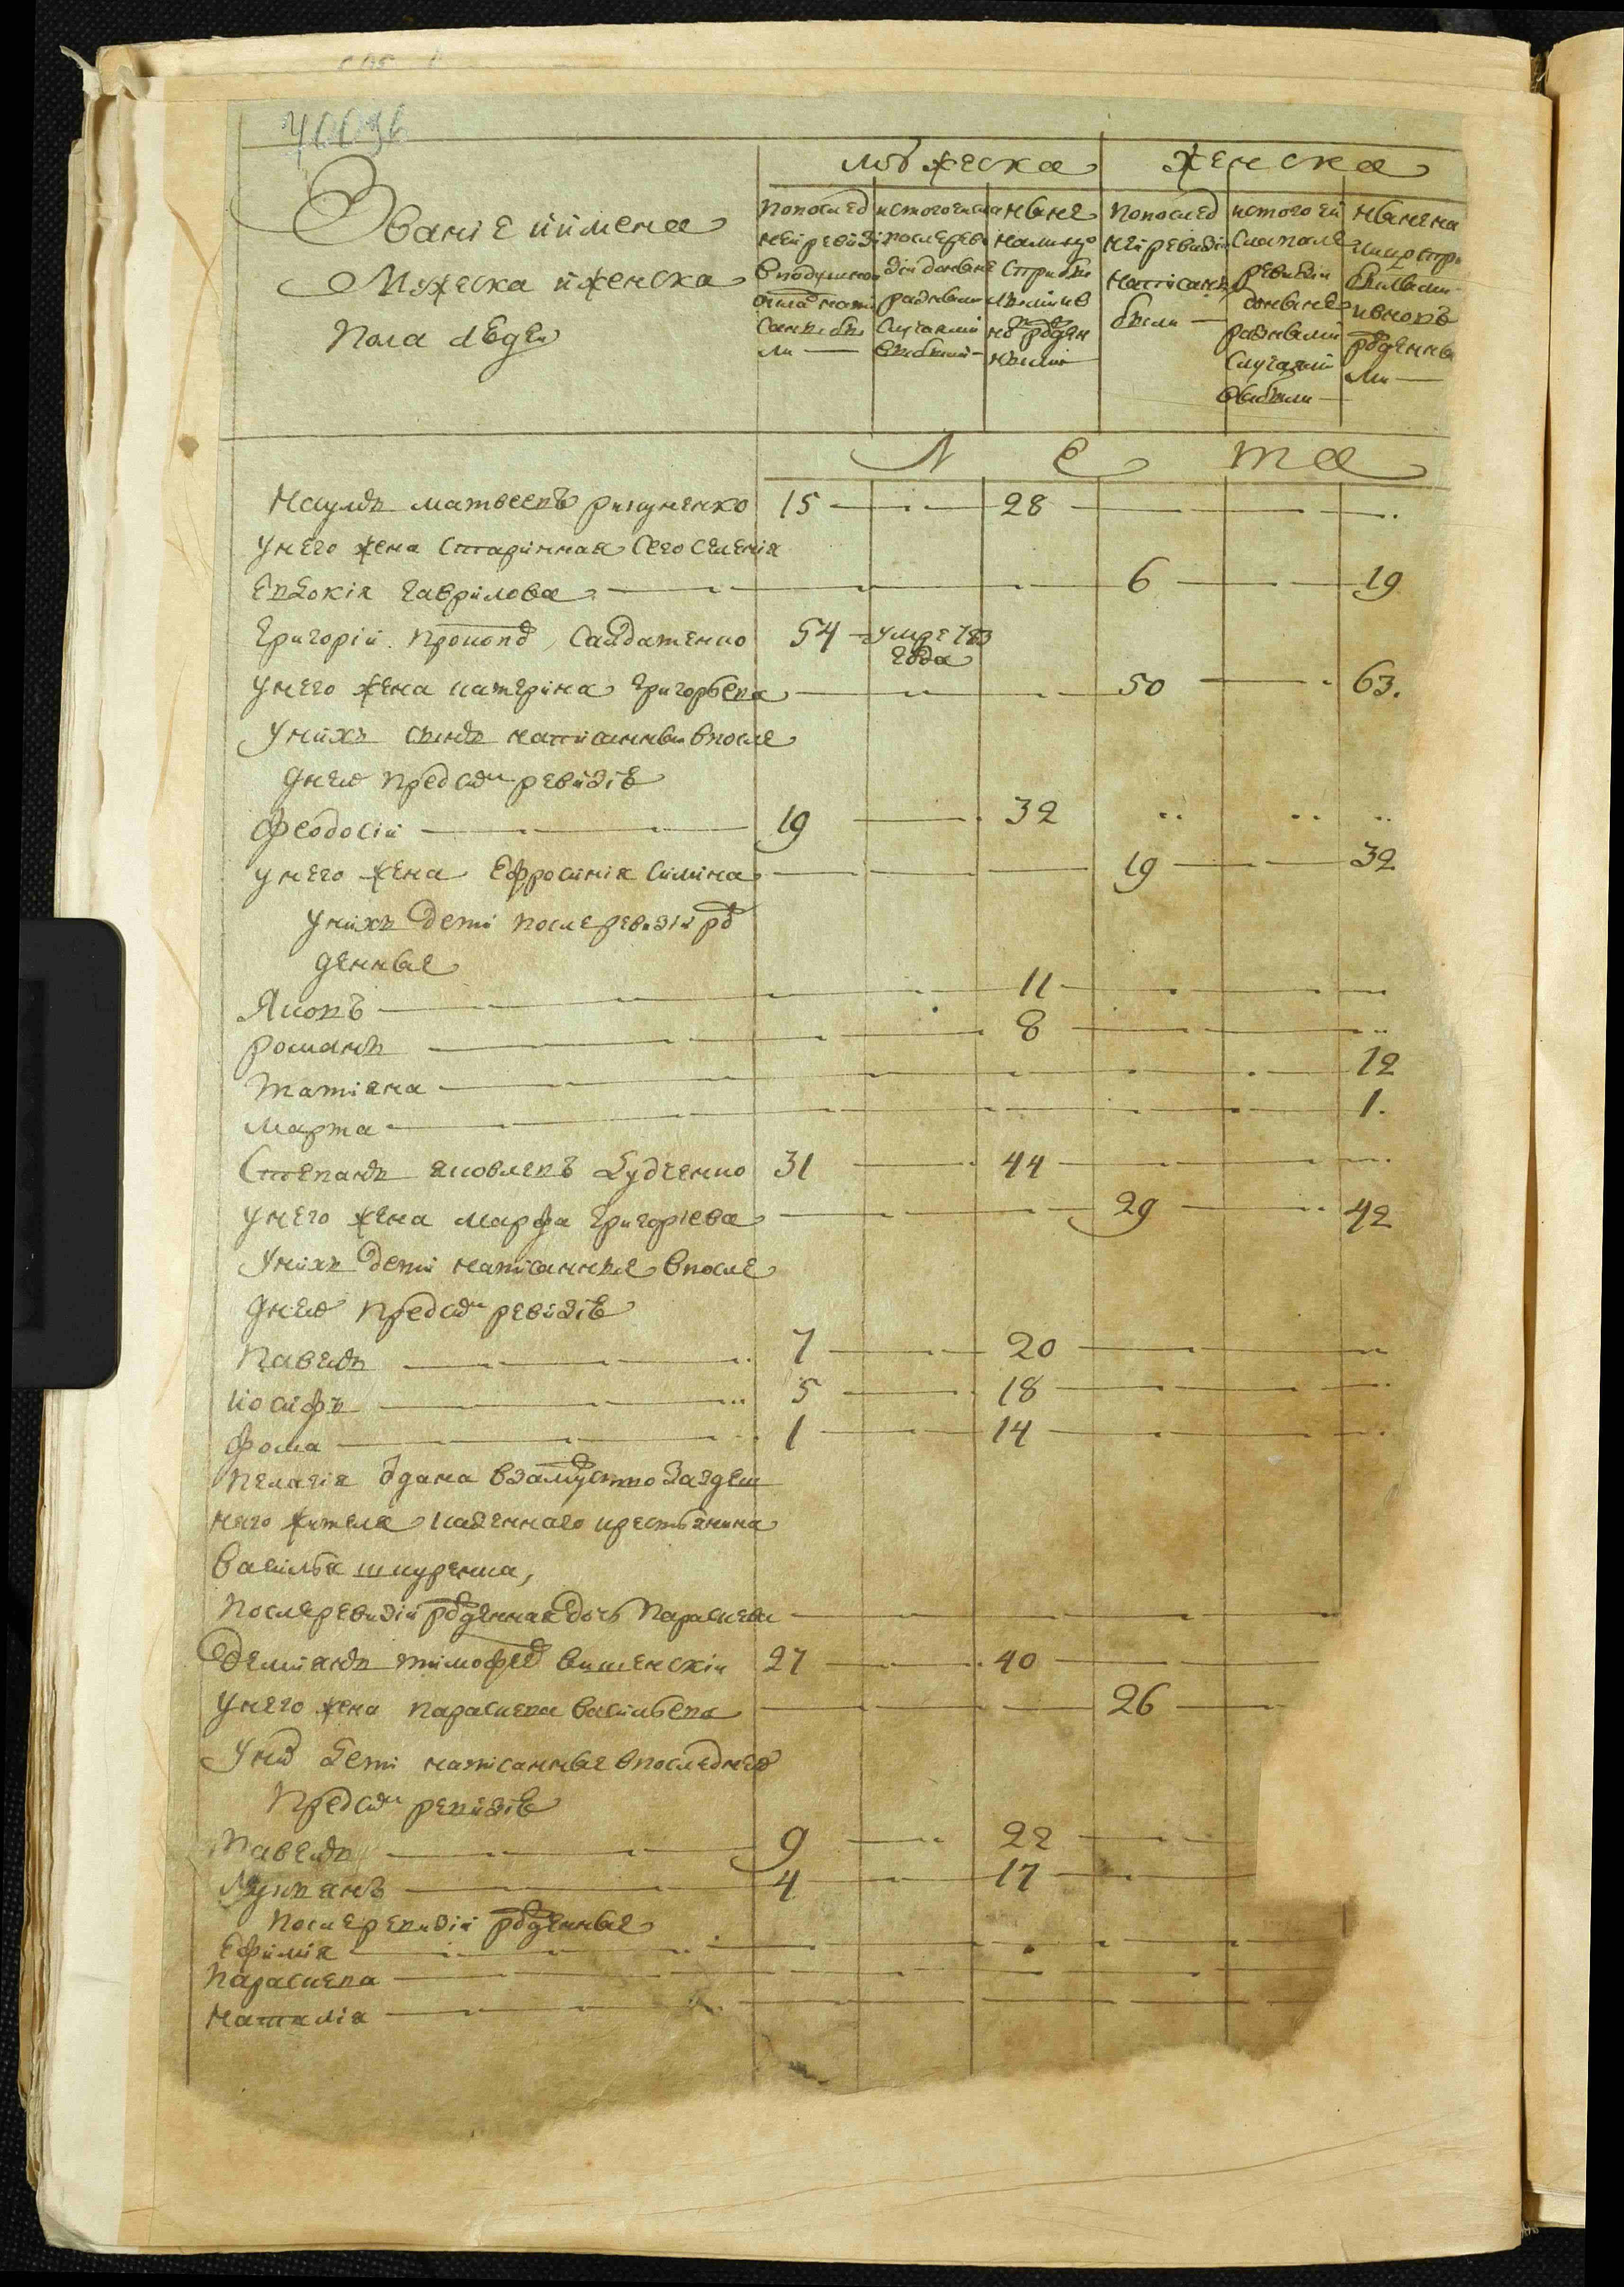 Званіе и имена
Мужеска и женска
Пола людей
мужеска
женска
по послед
ней ревизи
в подушном
окладе напи
саны бы
ли
ис того числа
после реви
зіи до ныне
разными
случаями
выбыли
ныне
на лицо
с прибы
лыми и в
нов рожден
ными
по послед
ней ревизіи
написаны
были
ис того чи
сла после
ревизіи
до ныне
разными
случаями
выбыли
ныне на
лицо с при
былыми
и вновь
рожденны
ми
Л е та
Наумъ матвеевъ 15 28
у него жена старинная сего селенія
Евдокія гаврилова 6 19
Григорій Прокоп Сайдаченко 54 умре 783 года
у него жена катерина григорьева 50 63.
у нихъ сынъ написанный в после
дней пред сим ревизіи
феодосій 19 32
у него жена Ефросинія Симина 19 32
у нихъ дети после ревизіи ро
жденные
Яковъ 11
романъ 8
татіяна 12
марта 1.
Степанъ яковлевъ Дудченко 31 44
у него жена марфа григоріева 29 42
у нихъ дети написанные в после
дней пред сим ревизіи
павелъ 7 20
иосифъ 5 18
фома 1 14
пелагія одана в замуство за здеш
него жителя казенного крестьянина
василья шкуренка,
после ревизіи рожденная дочь Параскева
демиянъ тимофеев вишенскій 27 40
у него жена параскева васильева 26
у них дети написанные в последней
пред сим ревизіи
павелъ 9 22
Лукиянъ 4 17
после ревизіи рожденные
Ефимія
параскева
наталія